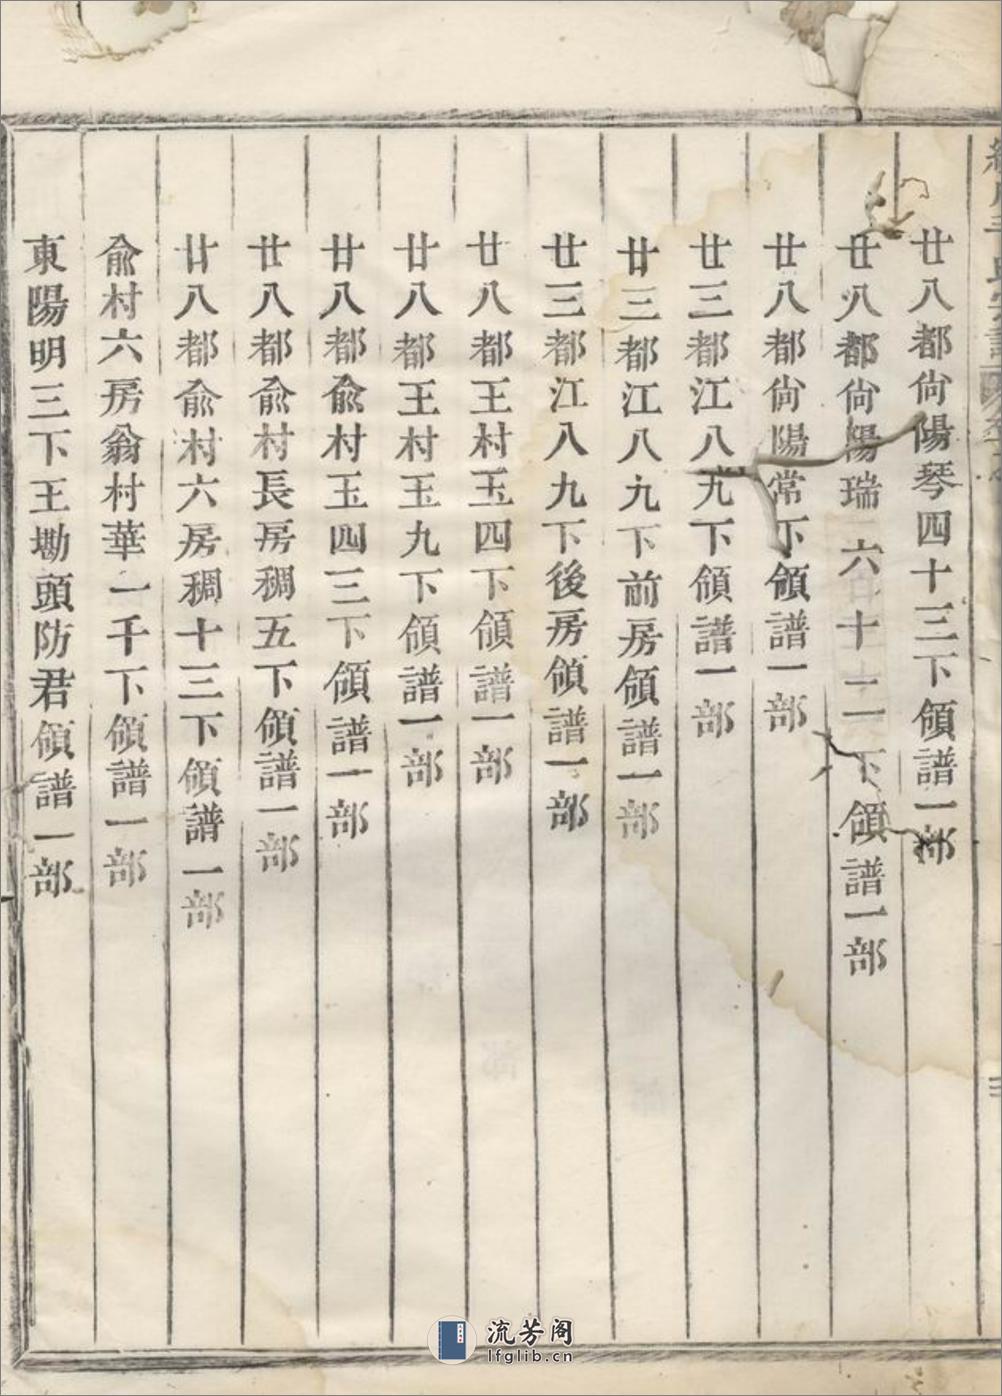 廿八都尙陽琴四十三下領譜一部
廿八都尙陽瑞二六十二下領譜一部
廿八都尙陽常下領譜一部
廿三都江八九下領譜一部
廿三都江八九下前房領譜一部
廿三都江八九下後房領譜一部
廿八都王村玉四下領譜一部
廿八都王村玉九下領譜一部
廿八都兪村玉四三下領譜一部
廿八都兪村長房稠五下領譜一部
廿八都兪村六房稠十三下領譜一部
兪村六房翁村華一千下領譜一部
東陽明三下王墈頭防君領譜一部
流芳阁
lfglib.cn